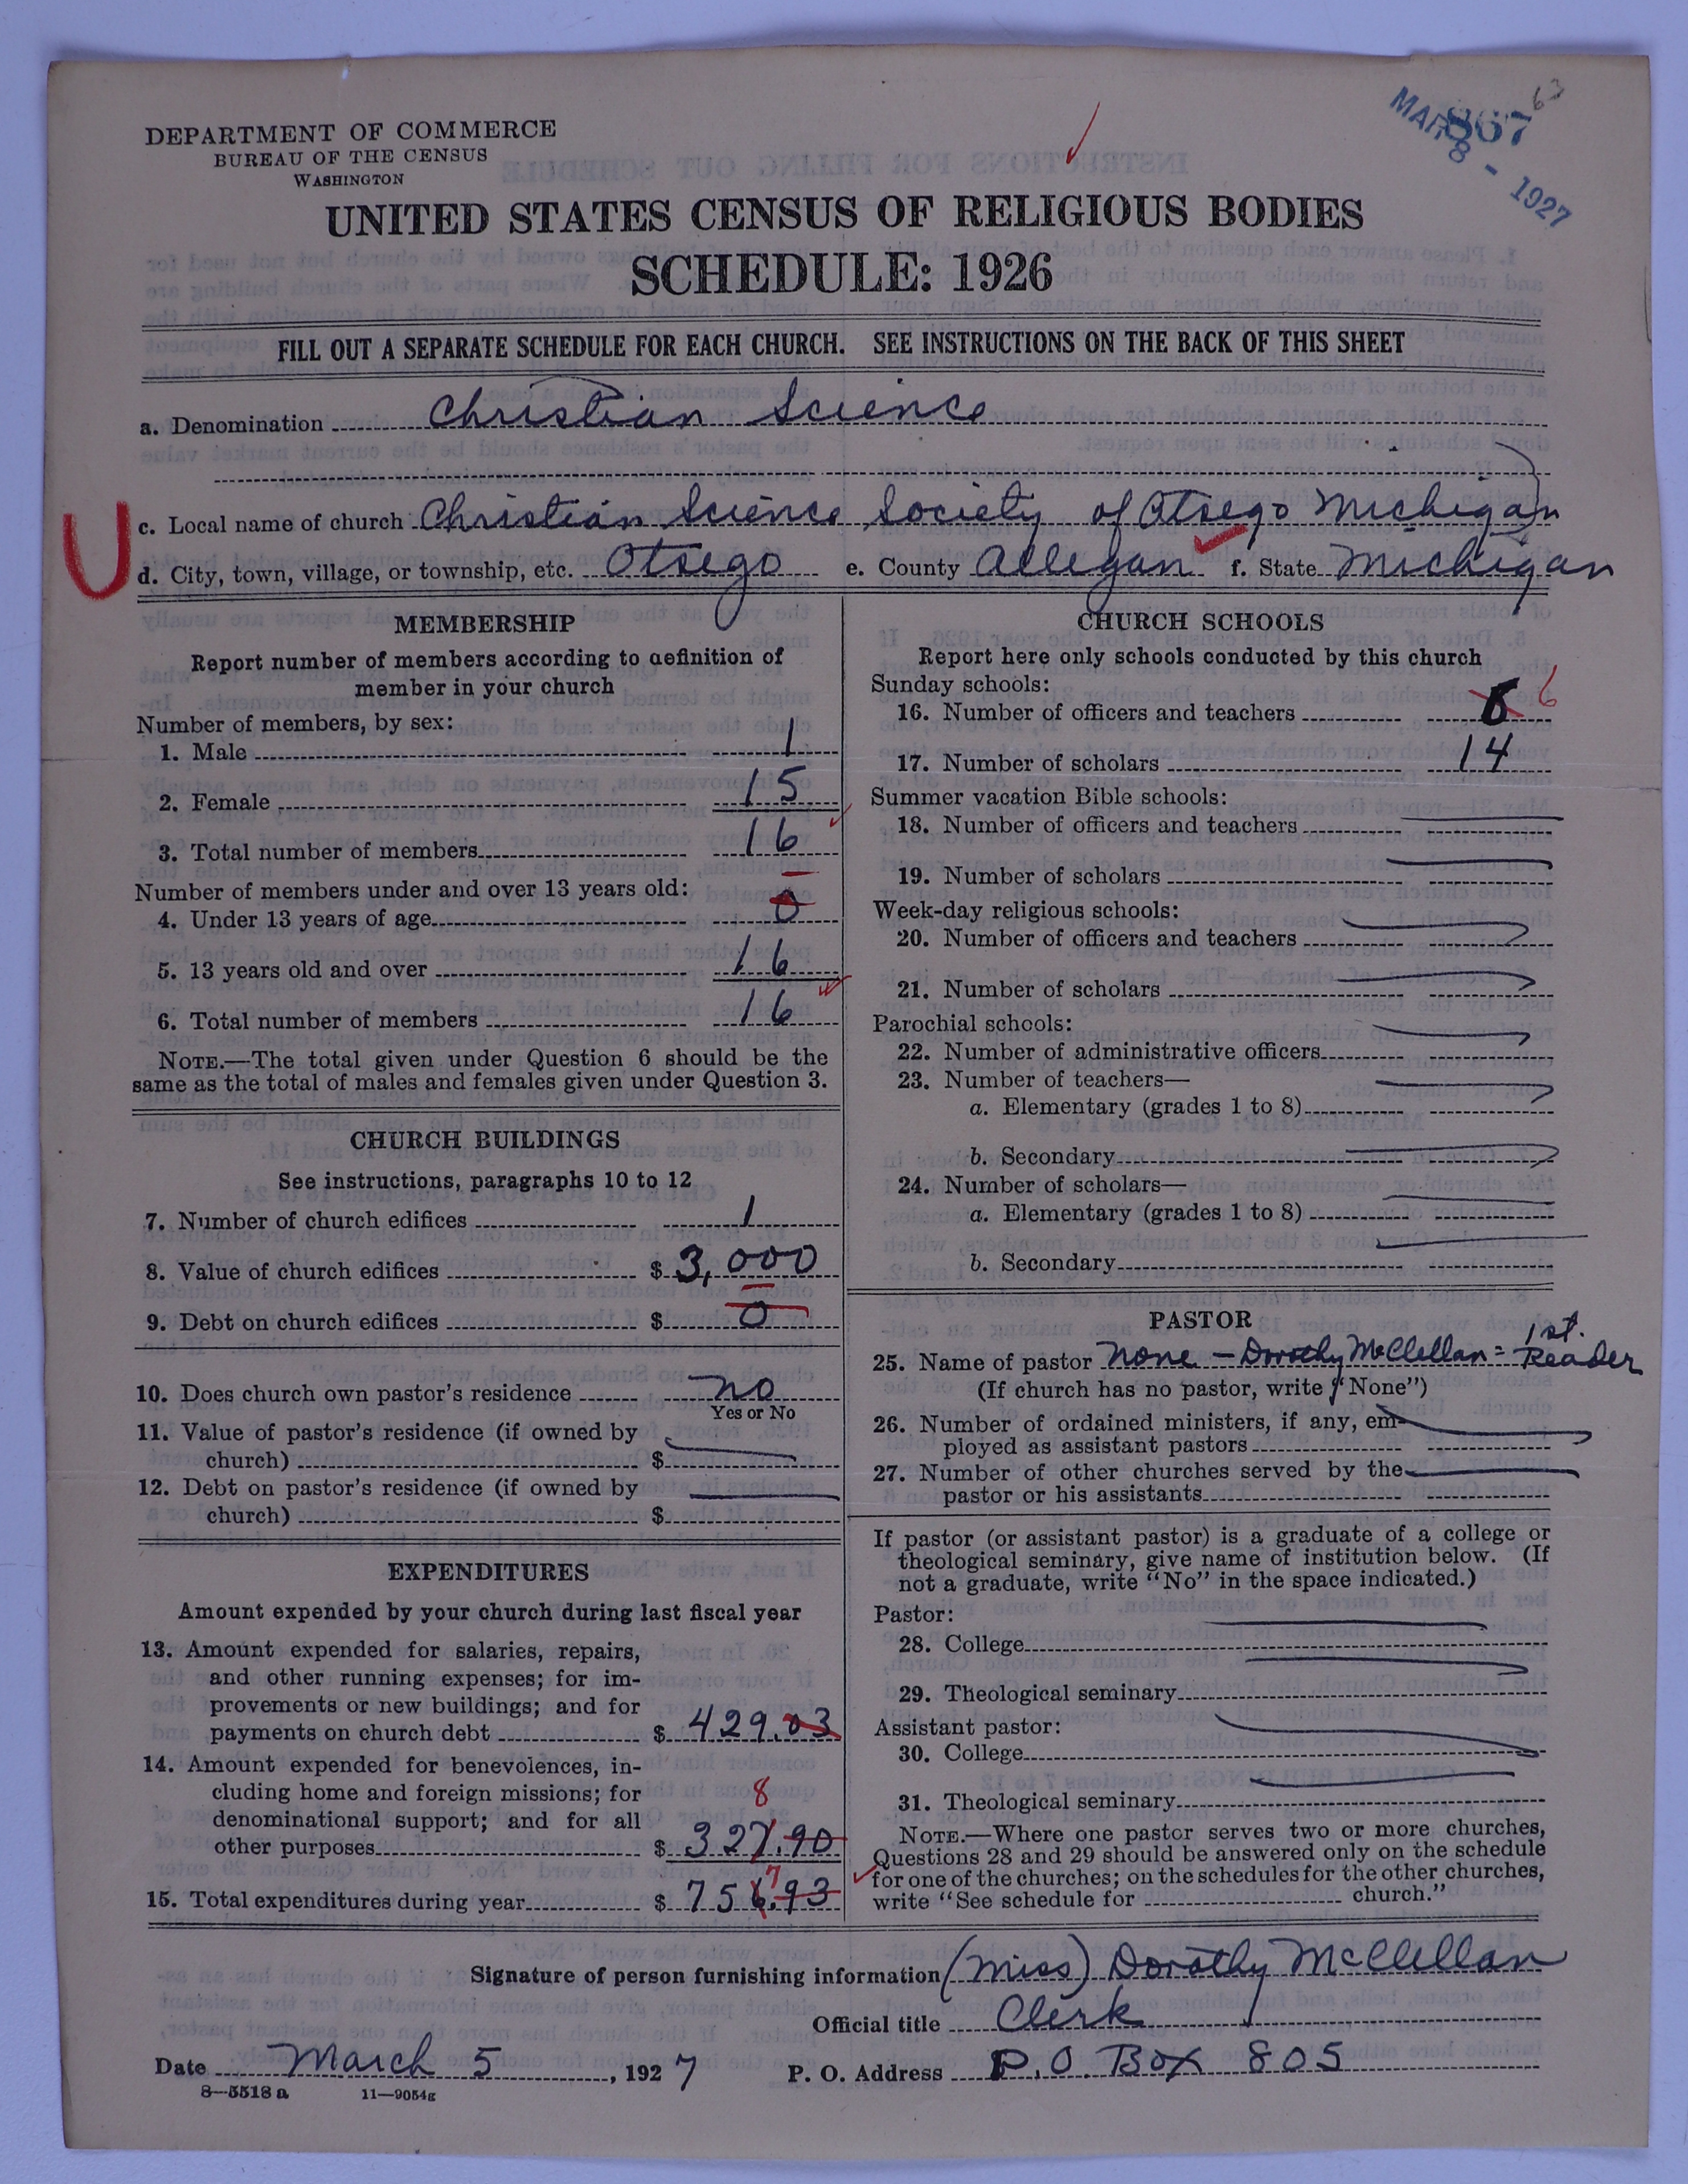 DEPARTMENT OF COMMERCE
BUREAU OF THE CENSUS
WASHINGTON
867
MAR 8 - 1927
UNITED STATES CENSUS OF RELIGIOUS BODIES
SCHEDULE: 1926
FILL OUT A SEPARATE SCHEDULE FOR EACH CHURCH. SEE INSTRUCTIONS ON THE BACK OF THIS SHEET
a. Denomination Christian Science
U
c. Local name of church Christian Science Society of Otsego Michigan
d. City, town, village, or township, etc. Otsego e. County Allegan f. State Michigan
MEMBERSHIP
Report number of members according to definition of
member in your church
Number of members, by sex:
1. Male 1
2. Female 15
3. Total number of members 16
Number of members under and over 13 years old:
4. Under 13 years of age 0
5. 13 years old and over 16
6. Total number of members 16
NOTE.—The total given under Question 6 should be the
same as the total of males and females given under Question 3.
CHURCH BUILDINGS
See instructions, paragraphs 10 to 12
7. Number of church edifices 1
8. Value of church edifices $ 3,000
9. Debt on church edifices $ 0
10. Does church own pastor's residence no
Yes or No
11. Value of pastor's residence (if owned by
church) $
12. Debt on pastor's residence (if owned by
church) $
EXPENDITURES
Amount expended by your church during last fiscal year
13. Amount expended for salaries, repairs,
and other running expenses; for im-
provements or new buildings; and for
payments on church debt $ 429.03
14. Amount expended for benevolences, in-
cluding home and foreign missions; for
8
denominational support; and for all
other purposes $ 327.90
7
15. Total expenditures during year $ 756.93
CHURCH SCHOOLS
Report here only schools conducted by this church
Sunday schools:
16. Number of officers and teachers 6
17. Number of scholars 14
Summer vacation Bible schools:
18. Number of officers and teachers
19. Number of scholars
Week-day religious schools:
20. Number of officers and teachers
21. Number of scholars
Parochial schools:
22. Number of administrative officers
23. Number of teachers—
a. Elementary (grades 1 to 8)
b. Secondary
24. Number of scholars—
a. Elementary (grades 1 to 8)
b. Secondary
PASTOR
25. Name of pastor None - Dorothy McClellan = 1st. Reader
(If church has no pastor, write "None")
26. Number of ordained ministers, if any, em-
ployed as assistant pastors
27. Number of other churches served by the
pastor or his assistants
If pastor (or assistant pastor) is a graduate of a college or
theological seminary, give name of institution below. (If
not a graduate, write "No" in the space indicated.)
Pastor:
28. College
29. Theological seminary
Assistant pastor:
30. College
31. Theological seminary
NOTE.—Where one pastor serves two or more churches,
Questions 28 and 29 should be answered only on the schedule
for one of the churches; on the schedules for the other churches,
write "See schedule for church."
Signature of person furnishing information (Miss) Dorothy McClellan
Official title Clerk
Date March 5, 1927 P. O. Address P.O. Box 805
8-5518 a 11-9054g